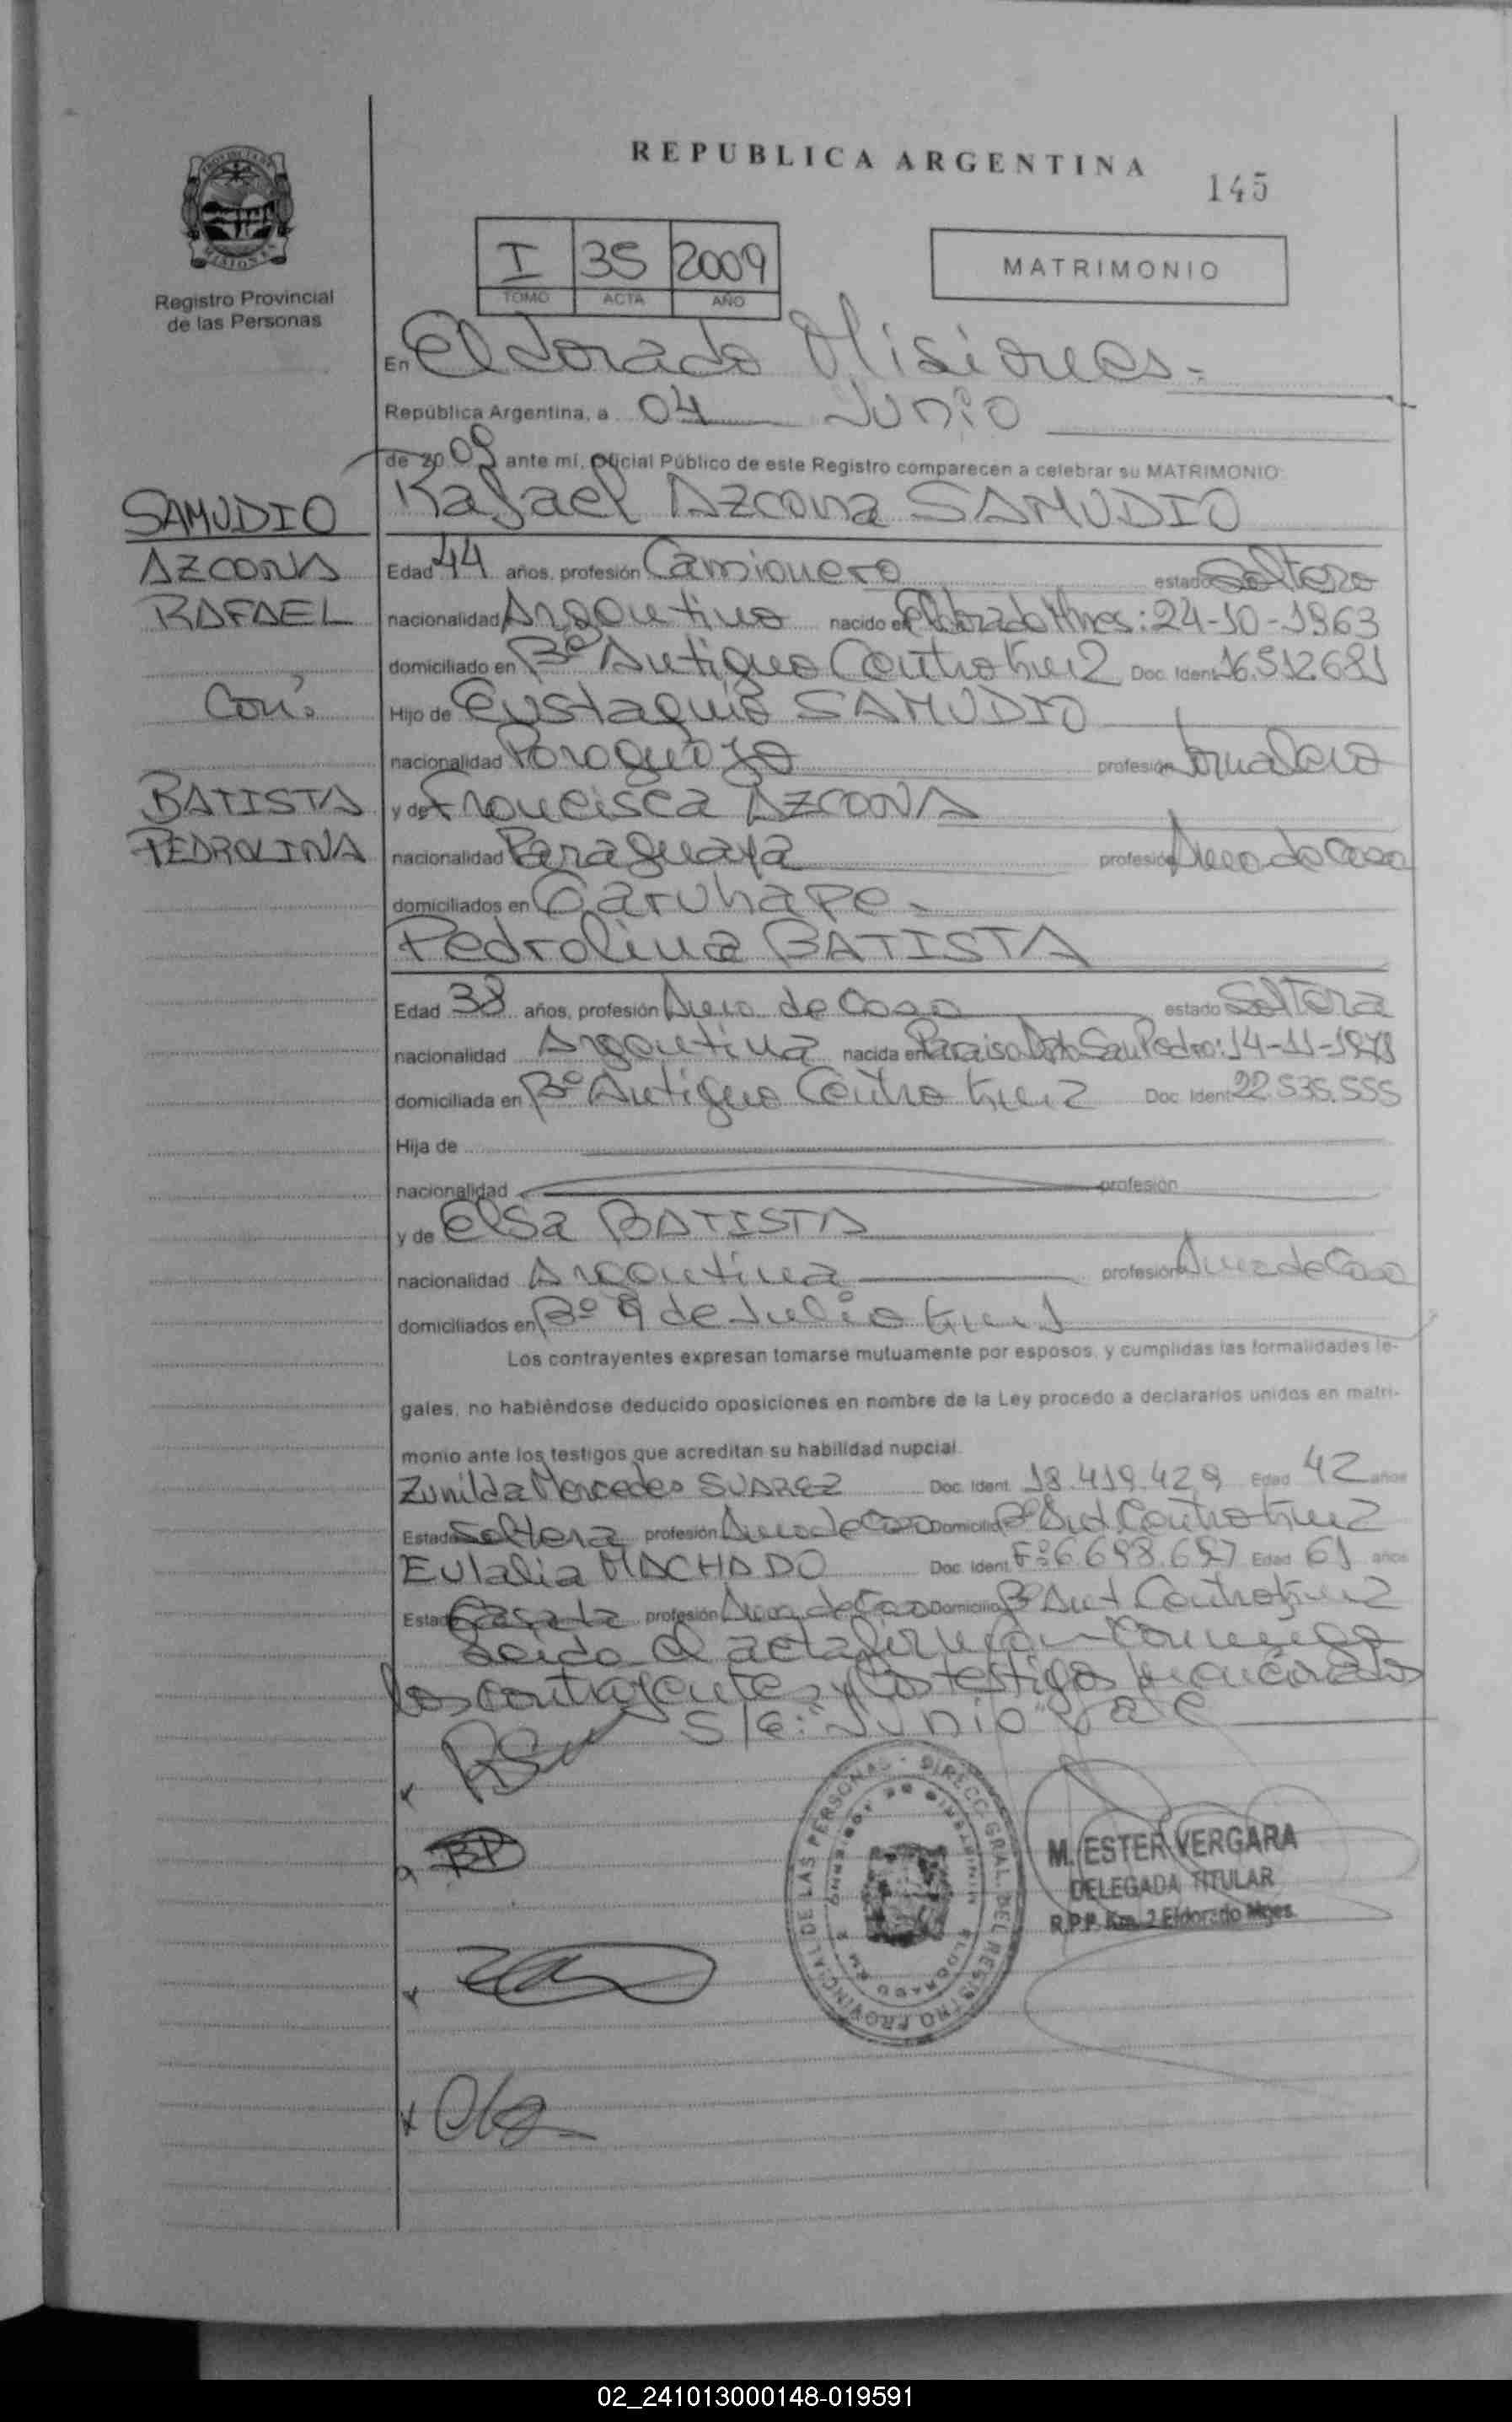 REPUBLICA ARGENTINA
145
Registro Provincial
de las Personas
I 35 2009
TOMO ACTA AÑO
MATRIMONIO
En Eldorado Misiones.-
República Argentina, a 04 Junio
de 2009 ante mí, Oficial Público de este Registro comparecen a celebrar su MATRIMONIO
SAMUDIO
AZCONA
RAFAEL
Con:
BATISTA
PEDROLINA
Rafael Azcona SAMUDIO
Edad 44 años, profesión Camionero estado Soltero
nacionalidad Argentino nacido en Eldorado Mnes: 24-10-1963
domiciliado en Bº Antiguo Centro Km 2 Doc. Ident. 16.512.681
Hijo de Eustaquio SAMUDIO
nacionalidad Paraguayo profesión Jornalero
y de Francisca AZCONA
nacionalidad Paraguaya profesión Ama de Casa
domiciliados en Caruhape.
Pedrolina BATISTA
Edad 38 años, profesión Ama de Casa estado Soltera
nacionalidad Argentina nacida en Paraiso Dpto San Pedro: 14-11-
domiciliada en Bº Antiguo Centro Km 2 Doc. Ident. 22.535.555
Hija de
nacionalidad profesión
y de Elsa BATISTA
nacionalidad Argentina profesión Ama de Casa
domiciliados en Bº 9 de Julio Km 1
Los contrayentes expresan tomarse mutuamente por esposos, y cumplidas las formalidades le-
gales, no habiéndose deducido oposiciones en nombre de la Ley procedo a declararlos unidos en matri-
monio ante los testigos que acreditan su habilidad nupcial.
Zunilda Mercedes SUAREZ Doc. Ident. 18.419.429 Edad 42 años
Estado Soltera profesión Ama de Casa Domicilio Bº Ant. Centro Km 2
Eulalia MACHADO Doc. Ident. F: 6.698.697 Edad 61 años
Estado Casada profesión Ama de Casa Domicilio Bº Ant Centro Km 2
Leida el acta firman conmigo
los contrayentes y los testigos mencionados
S/e: "Junio" Vale
BP
DIRECC. GRAL. DEL REGISTRO PROVINCIAL DE LAS PERSONAS
MINISTERIO DE GOBIERNO
ELDORADO KM 2
M. ESTER VERGARA
DELEGADA TITULAR
R.P.P. Km. 2 Eldorado Mnes.
02_241013000148-019591